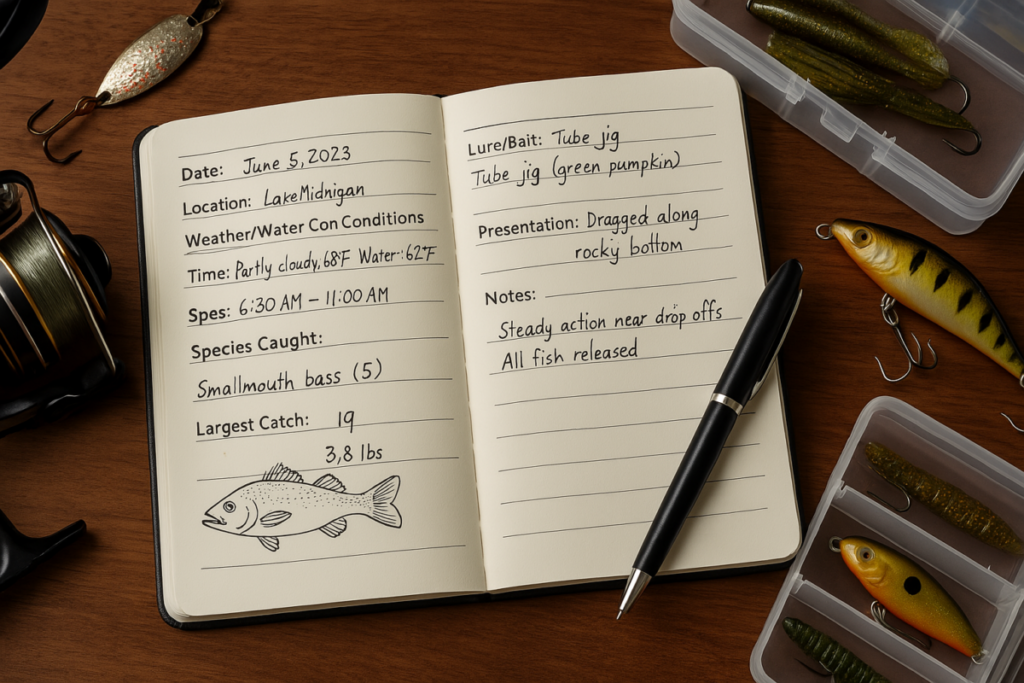 Date: June 5, 2023
Location: Lake Midnigan
Weather/Water Con Conditions
Time: Partly cloudy, 68°F Water: 62°F
Spes: 6:30 AM – 11:00 AM
Species Caught:
Smallmouth bass (5)
Largest Catch: 19
3,8 lbs
Lure/Bait: Tube jig
Tube jig (green pumpkin)
Presentation: Dragged along
rocky bottom
Notes:
Steady action near drop offs
All fish released